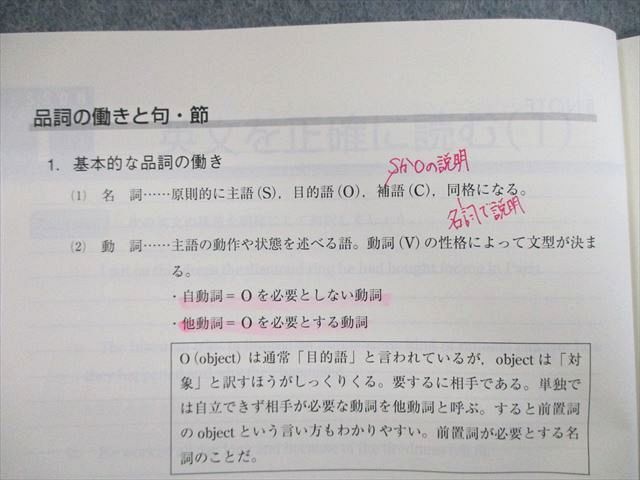 品詞の働きと句・節
1. 基本的な品詞の働き
SかOの説明
(1) 名 詞……原則的に主語(S), 目的語(O), 補語(C), 同格になる。
名詞で説明
(2) 動 詞……主語の動作や状態を述べる語。動詞(V)の性格によって文型が決ま
る。
・自動詞＝Oを必要としない動詞
・他動詞＝Oを必要とする動詞
O(object)は通常「目的語」と言われているが, objectは「対
象」と訳すほうがしっくりくる。要するに相手である。単独で
は自立できず相手が必要な動詞を他動詞と呼ぶ。すると前置詞
のobjectという言い方もわかりやすい。前置詞が必要とする名
詞のことだ。
英文を正確に読む(1)